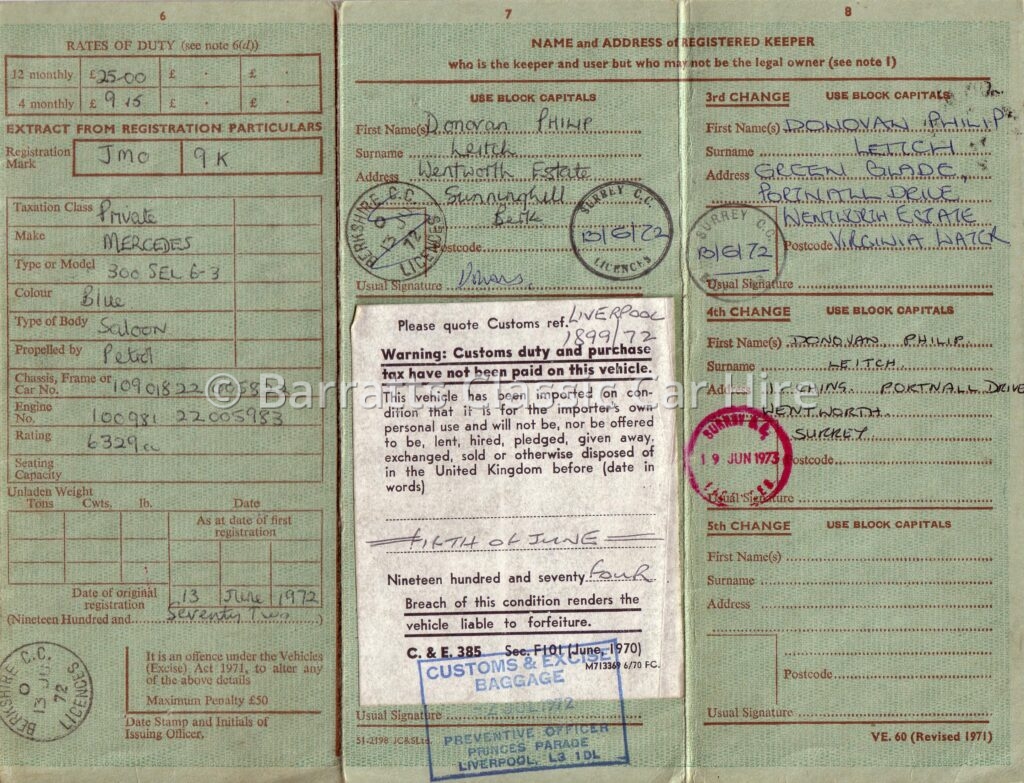 6
RATES OF DUTY (see note 6(d))
12 monthly £ 25-00 £ . £ .
4 monthly £ 9.15 £ . £ .
EXTRACT FROM REGISTRATION PARTICULARS
Registration Mark JMO 9K
Taxation Class Private
Make MERCEDES
Type or Model 300 SEL 6-3
Colour Blue
Type of Body Saloon
Propelled by Petrol
Chassis, Frame or
Car No. 10901822
Engine
No. 100981 22005983
Rating 6329cc
Seating
Capacity
Unladen Weight
Tons Cwts. lb. Date
As at date of first
registration
Date of original
registration 13 June 1972
(Nineteen Hundred and Seventy Two )
BERKSHIRE C.C.
13 72
LICENCES
It is an offence under the Vehicles
(Excise) Act 1971, to alter any
of the above details
Maximum Penalty £50
Date Stamp and Initials of
Issuing Officer,
7
NAME and ADDRESS of REGISTERED KEEPER
who is the keeper and user but who may not be the legal owner (see note 1)
USE BLOCK CAPITALS
First Name(s) Donovan PHILIP
Surname Leitch
Address Wentworth Estate
Sunninghill
Berk
Postcode
BERKSHIRE C.C.
13 72
LICENCES
SURREY C.C.
13/6/72
LICENCES
Usual Signature
Please quote Customs ref. LIVERPOOL
1899/72
Warning: Customs duty and purchase
tax have not been paid on this vehicle.
This vehicle has been imported on con-
dition that it is for the importer's own
personal use and will not be, nor be offered
to be, lent, hired, pledged, given away,
exchanged, sold or otherwise disposed of
in the United Kingdom before (date in
words)
FIFTH OF JUNE
Nineteen hundred and seventy four
Breach of this condition renders the
vehicle liable to forfeiture.
C. & E. 385 Sec. F101 (June, 1970)
M713369 6/70 F.C.
CUSTOMS & EXCISE
BAGGAGE
1972
PREVENTIVE OFFICER
PRINCES PARADE
LIVERPOOL, L3 1DL
Usual Signature
51-2198 JC&SLtd.
8
3rd CHANGE USE BLOCK CAPITALS
First Name(s) DONOVAN PHILIP
Surname LEITCH
Address GREEN GLADE,
PORTNALL DRIVE
WENTWORTH ESTATE
Postcode VIRGINIA WATER
SURREY C.C.
13/6/72
Usual Signature
4th CHANGE USE BLOCK CAPITALS
First Name(s) DONOVAN PHILIP
Surname LEITCH
PORTNALL DRIVE
WENTWORTH
SURREY
Postcode
SURREY
19 JUN 1973
Usual Signature
5th CHANGE USE BLOCK CAPITALS
First Name(s)
Surname
Address
Postcode
Usual Signature
VE. 60 (Revised 1971)
© Barratts Classic Car Hire